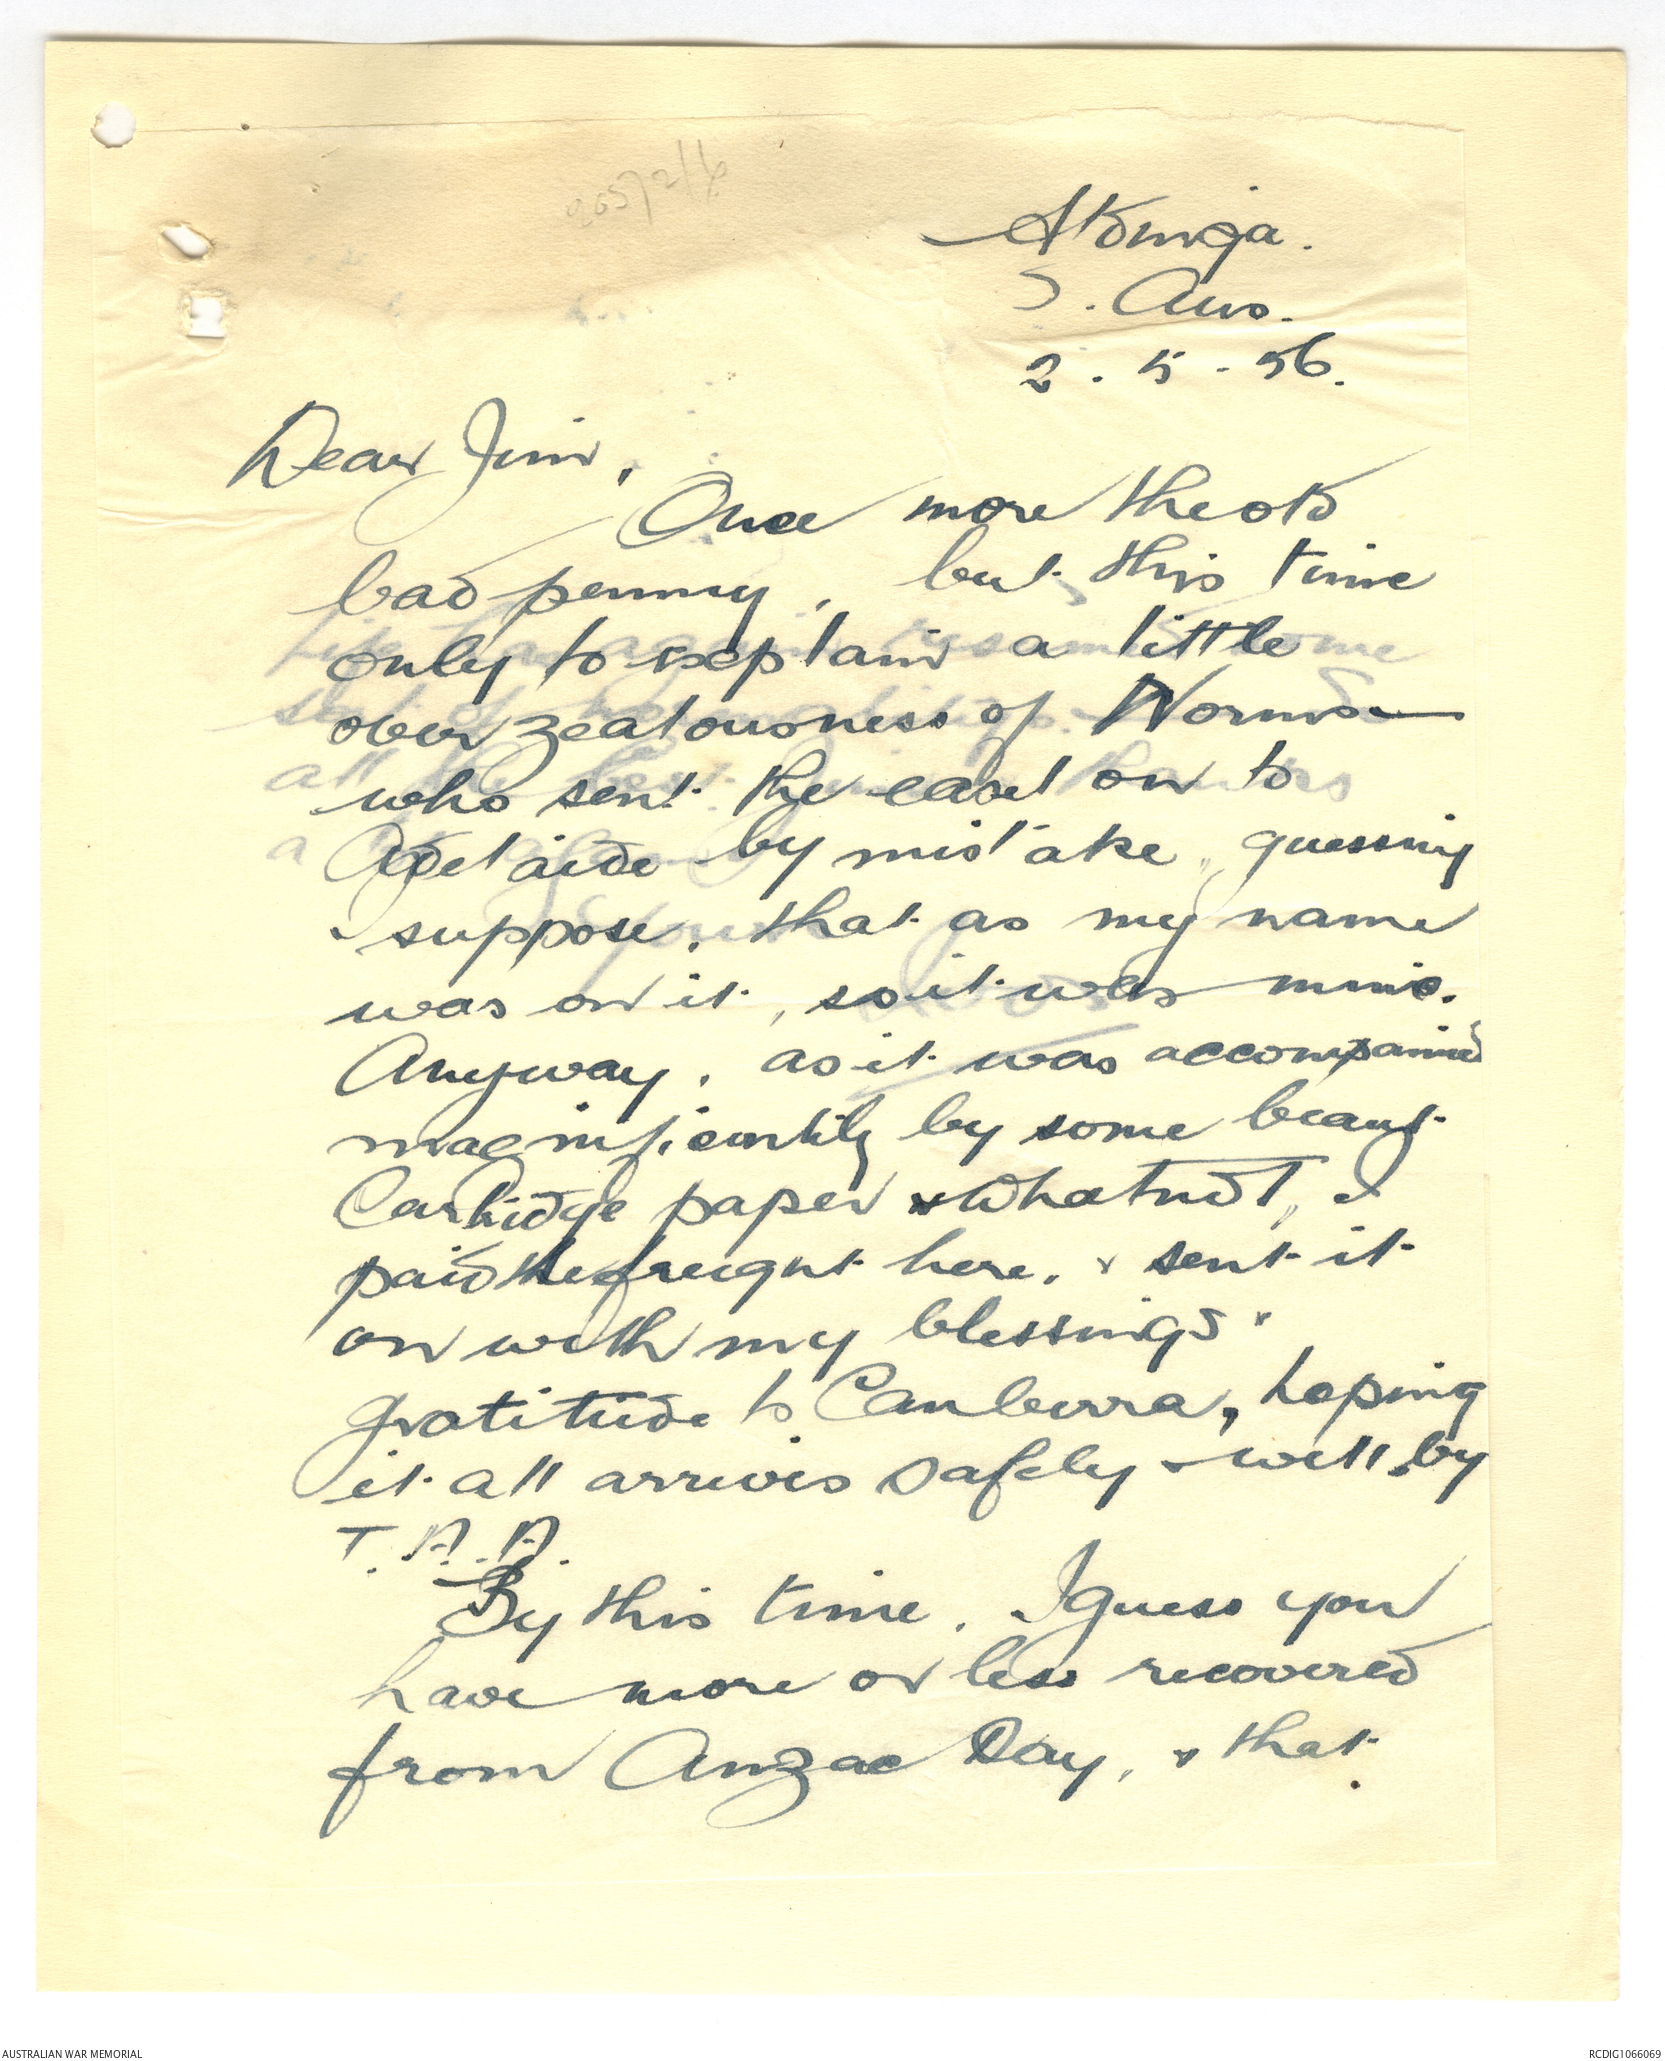 Aldinga.
S. Aus.
2.5.56.
Dear Jim,
Once more the old
bad penny, but this time
only to explain a little
over zealousness of
who sent the easel on to
Adelaide by mistake, guessing
I suppose, that as my name
was on it, so it was mine.
Anyway, as it was accompanied
magnificently by some beaut
Cartridge paper & Whatnot, I
paid the freight here, & sent it
on with my blessings &
gratitude to Canberra, hoping
it all arrives safely & well by
T.A.A.
By this time, I guess you
have more or less recovered
from Anzac Day, & that
AUSTRALIAN WAR MEMORIAL
RCDIG1066069